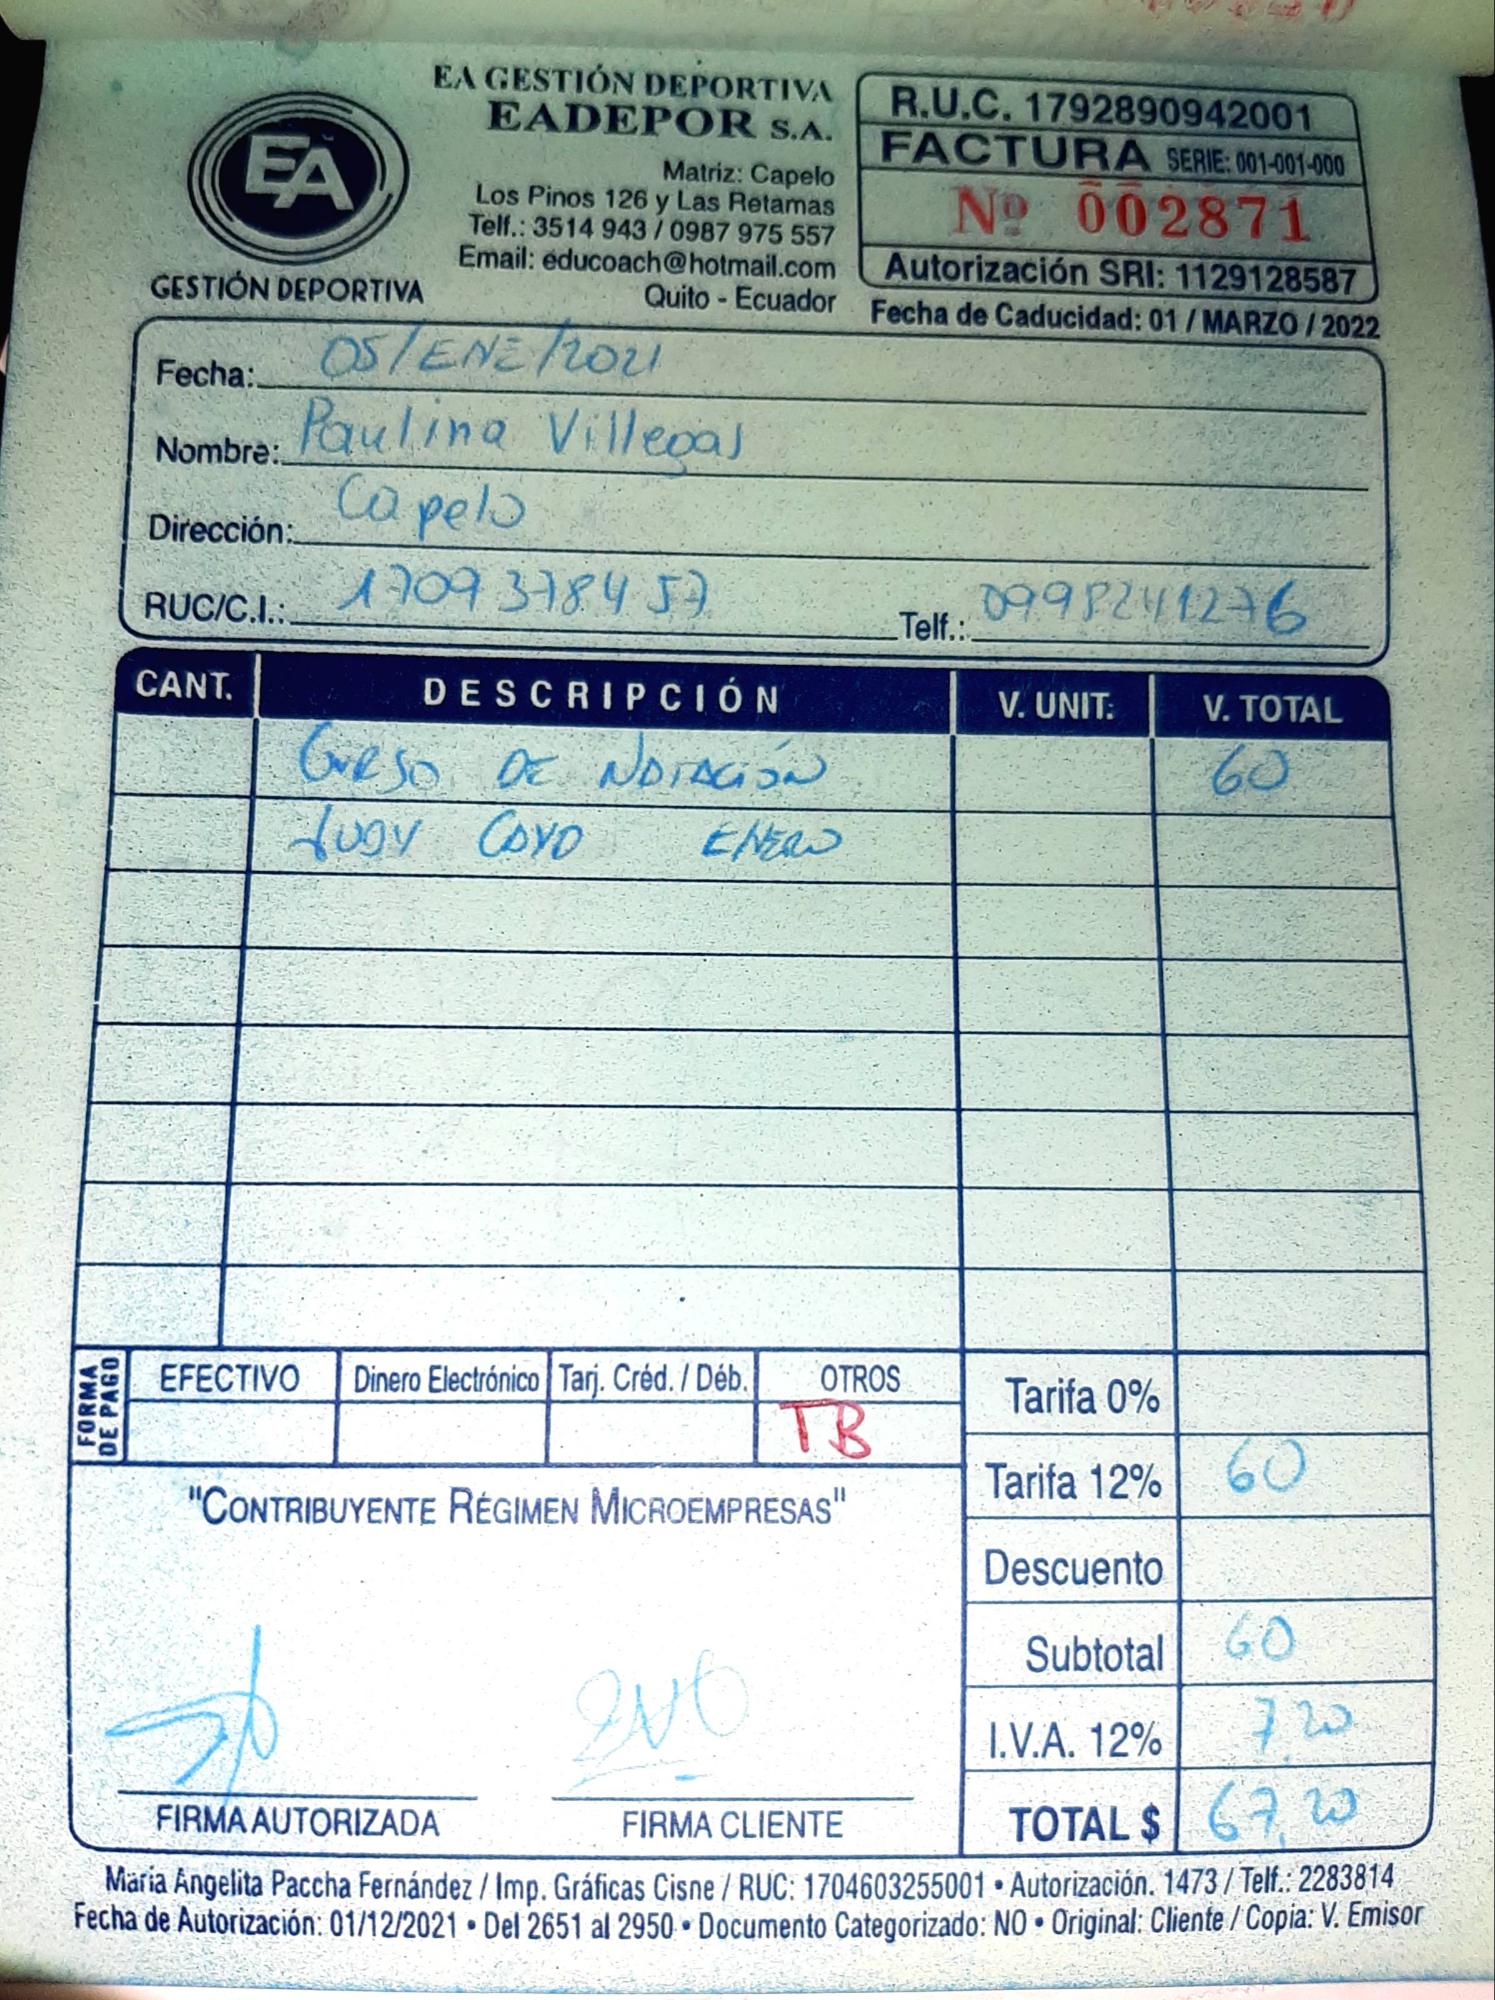 EA GESTIÓN DEPORTIVA
EADEPOR S.A.
EA
GESTIÓN DEPORTIVA
Matriz: Capelo
Los Pinos 126 y Las Retamas
Telf.: 3514 943 / 0987 975 557
Email: educoach@hotmail.com
Quito - Ecuador
R.U.C. 1792890942001
FACTURA SERIE: 001-001-000
Nº 002871
Autorización SRI: 1129128587
Fecha de Caducidad: 01 / MARZO / 2022
Fecha: 05/ENE/2021
Nombre: Paulina Villegas
Dirección: Capelo
RUC/C.I.: 1709378457 Telf.: 0998241276
CANT. DESCRIPCIÓN V. UNIT. V. TOTAL
Curso DE Natación 60
ENERO
FORMA DE PAGO
EFECTIVO Dinero Electrónico Tarj. Créd. / Déb. OTROS
TB
Tarifa 0%
Tarifa 12% 60
"CONTRIBUYENTE RÉGIMEN MICROEMPRESAS"
Descuento
Subtotal 60
I.V.A. 12% 7,20
TOTAL $ 67,20
FIRMA AUTORIZADA FIRMA CLIENTE
María Angelita Paccha Fernández / Imp. Gráficas Cisne / RUC: 1704603255001 • Autorización. 1473 / Telf.: 2283814
Fecha de Autorización: 01/12/2021 • Del 2651 al 2950 • Documento Categorizado: NO • Original: Cliente / Copia: V. Emisor